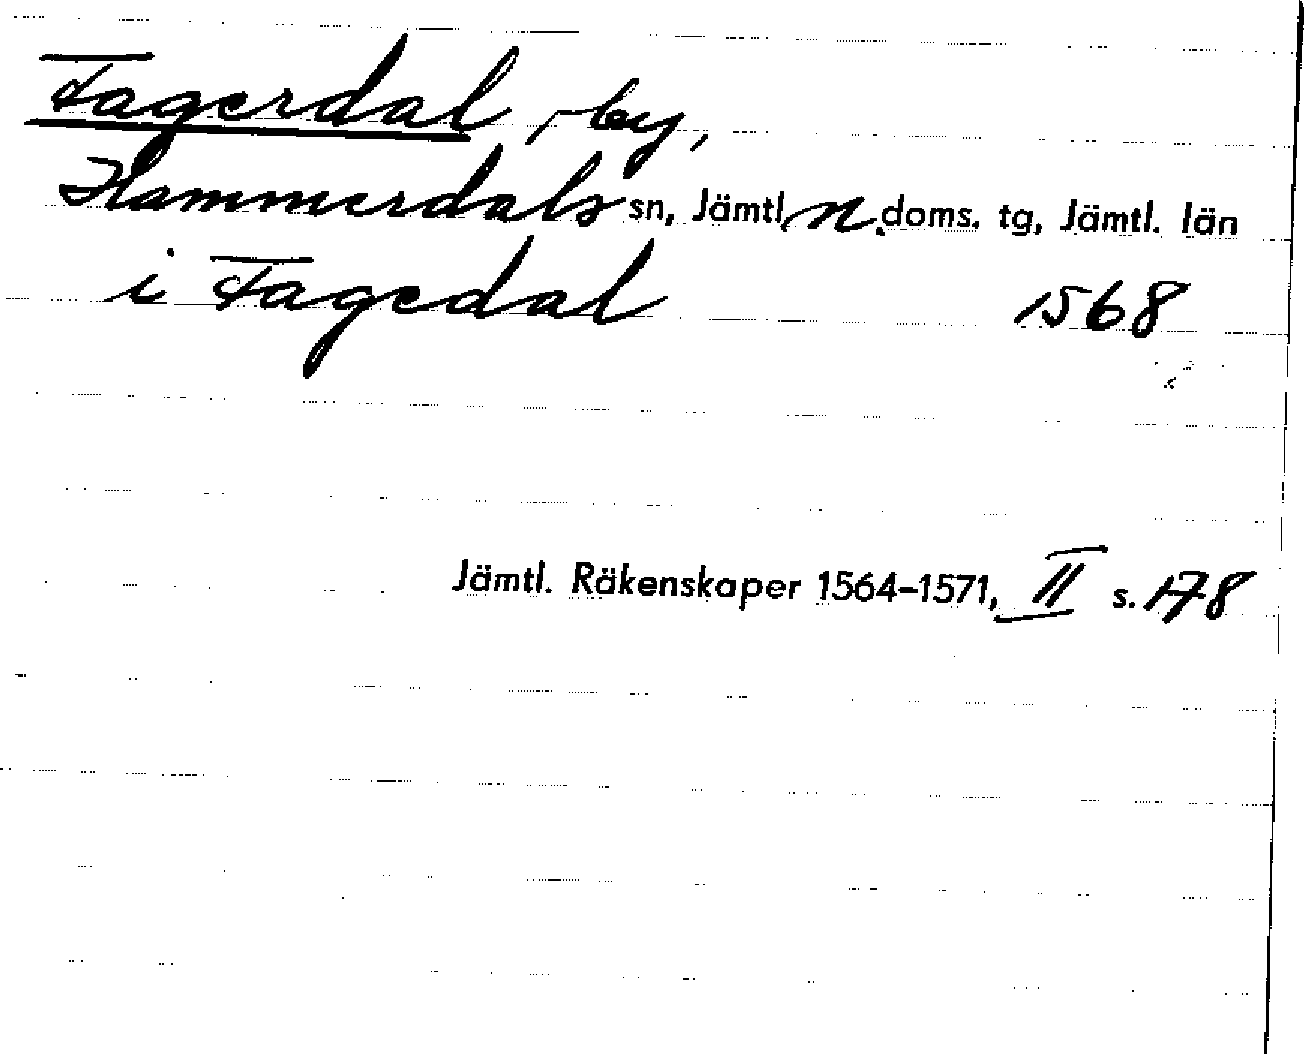 Fagerdal, by,
Hammerdals sn, Jämtl. n. doms. tg, Jämtl. län
i Fagedal 1568
Jämtl. Räkenskaper 1564-1571, II s. 178